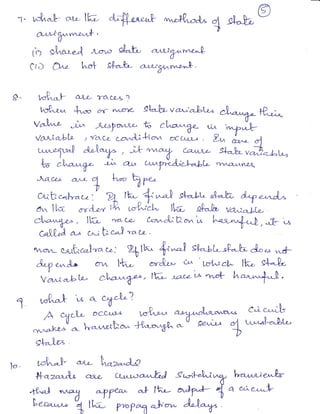 5
7. what are the different methods of state
assignment.
(i) shared row state assignment
(ii) One hot state assignment.
8. what are races?
when two or more state variables change their
value in response to change in input
variable, race condition occurs. In case of
unequal delays, it may cause state variables
to change in an unpredictable manner.
races are of two types
Critical race: If the final stable state depends
on the order in which the state variable
changes, the race condition is harmful, it is
called as critical race.
non critical race: If the final stable state does not
depends on the order in which the state
variable changes, the race is not harmful.
9. what is a cycle?
A cycle occurs when asynchronous circuit
makes a transition through a series of unstable
states.
10. what are hazards
Hazards are unwanted switching transients
that may appear at the output of a circuit
because of the propagation delays.